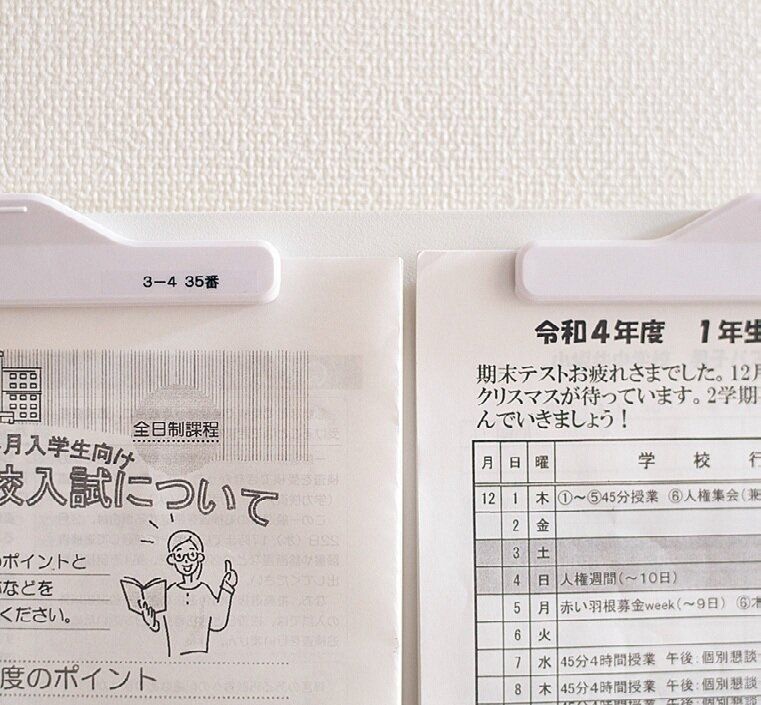 3-4 35番
全日制課程
月入学生向け
校入試について
のポイントと
などを
ください。
度のポイント
令和4年度 1年生
期末テストお疲れさまでした。12月
クリスマスが待っています。2学期
んでいきましょう！
月 日 曜 学校行
12 1 木 ①～⑤45分授業 ⑥人権集会（兼
2 金
3 土
4 日 人権週間（～10日）
5 月 赤い羽根募金week（～9日） ⑥
6 火
7 水 45分4時間授業 午後：個別懇談
8 木 45分4時間授業 午後：個別懇談